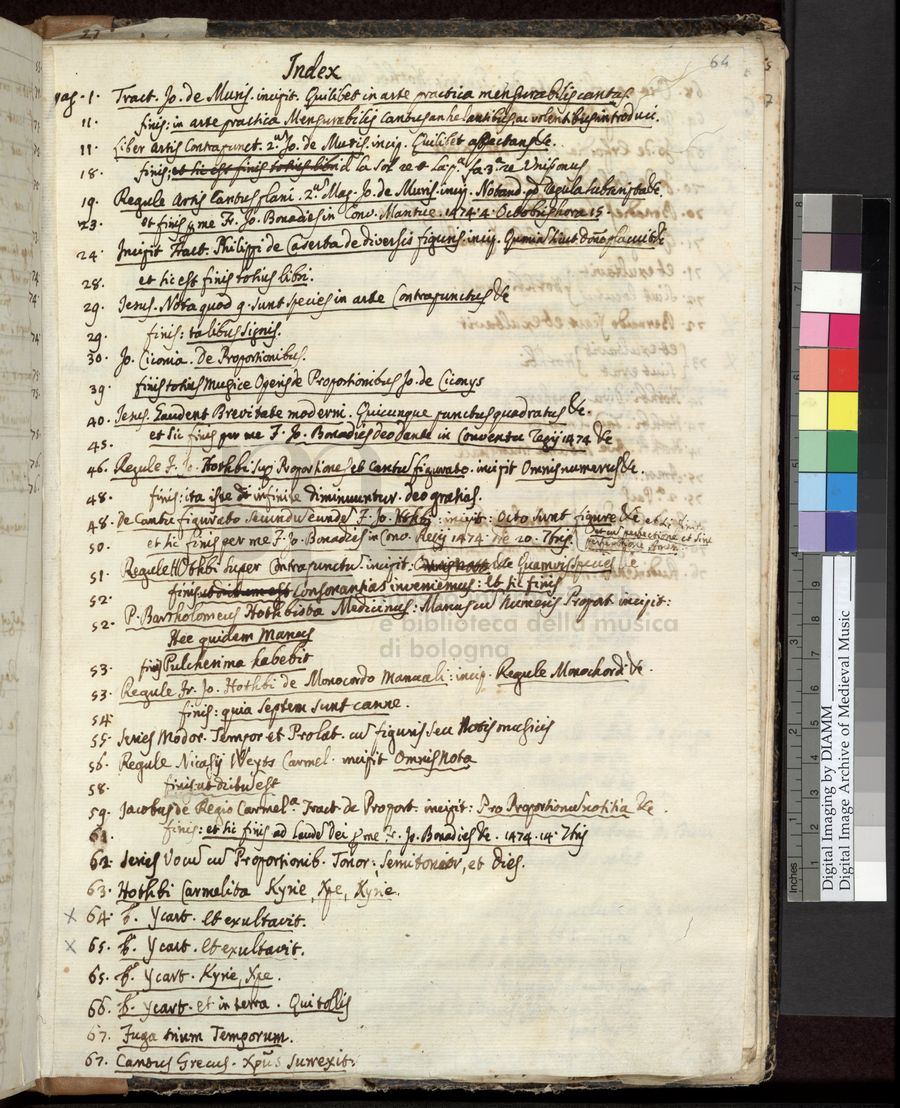 64
Index
pag. 1. Tract. Jo. de Muris. incipit. Quilibet in arte practica mensurabilis cantus
11. finis: in arte practica Mensurabilis Cantus anhelantibus ac volentibus introduci.
11. Liber artis Contrapunct. 2.us Jo. de Muris. incip. Quilibet affectans &c.
18. finis: et hic est finis totius libri
19. Regule Artis Cantus plani. 2.us Mag. Jo. de Muris. incip. Notand. qd
23. et finis p me Fr. Jo. Bonadies in Conv. Mantue. 1474. 4. Octobris hora 15.
24. Incipit Tract. Philippi de Caserta de diversis figuris. incip. Quoniam sicut dño placuit &c
28. et hic est finis totius libri.
29. Jesus. Nota quod 9. sunt species in arte Contrapunctus &c
29. finis: talibus signis.
30. Jo. Ciconia. de Proportionibus.
39. finis totius Musice Operis de Proportionibus Jo. de Ciconys
40. Jesus. Gaudent Brevitate moderni. Quicunque punctus quadratus &c.
45. et sic finis per me F. Jo. Bonadies deo dante in Conventu Regij 1474 &c
46. Regule F. Jo. Hothbi sup Proportione et Cantu figurato. incipit Omnis numerus &c.
48. finis: ita iste in infinite diminuuntur. deo gratias.
48. De Cantu figurato secundu eundē F. Jo. Hothbi: incipit: Octo sunt figure &c et hic finit
50. et hic finis per me F. Jo. Bonadies in Cōno. Regij 1474. die 20. 7bris. Cum perfectione et sine
perfectione
51. Regule Hothbi super Contrapunctus incipit. de Quamvis species &c
52. finis Consonantias inveniemus: et sic finis
52. P. Bartholomeus Hothbista Medicinus: Manus cu Numeris Proport incipit:
Hec quidem Manus
53. finis Pulcherima habebit
53. Regule Fr. Jo. Hothbi de Monocordo Manuali: incip. Regule Monochordi &c.
54 finis: quia septem sunt canne.
55. Series Modor. Tempor et Prolat. cu figuris seu Notis musicis
56. Regule Nicasij Weyts Carmel. incipit Omnis Nota
58. finis: ut dictu est
59. Jacobus de Regio Carmel.a Tract de Proport incipit: Pro Proportionus notitia &c.
61. finis: et hic finis ad laudē Dei p me Fr. Jo. Bonadies &c. 1474. 14. 7bris
62. Series Vocū cu Proportionib. Tonor: semitonior, et Dies.
63. Hothbi Carmelita Kyrie, Xpe, Kyrie.
x 64. b. Ycart. et exultavit.
x 65. b. Ycart. et exultavit.
65. b. Ycart. Kyrie, Xpe.
66. b. Ycart. et in terra. Qui tollis
67. Fuga trium Temporum.
67. Cantus Grecus. Xpūs surrexit.
e biblioteca della musica
di bologna
Inches
Digital Imaging by DIAMM
Digital Image Archive of Medieval Music